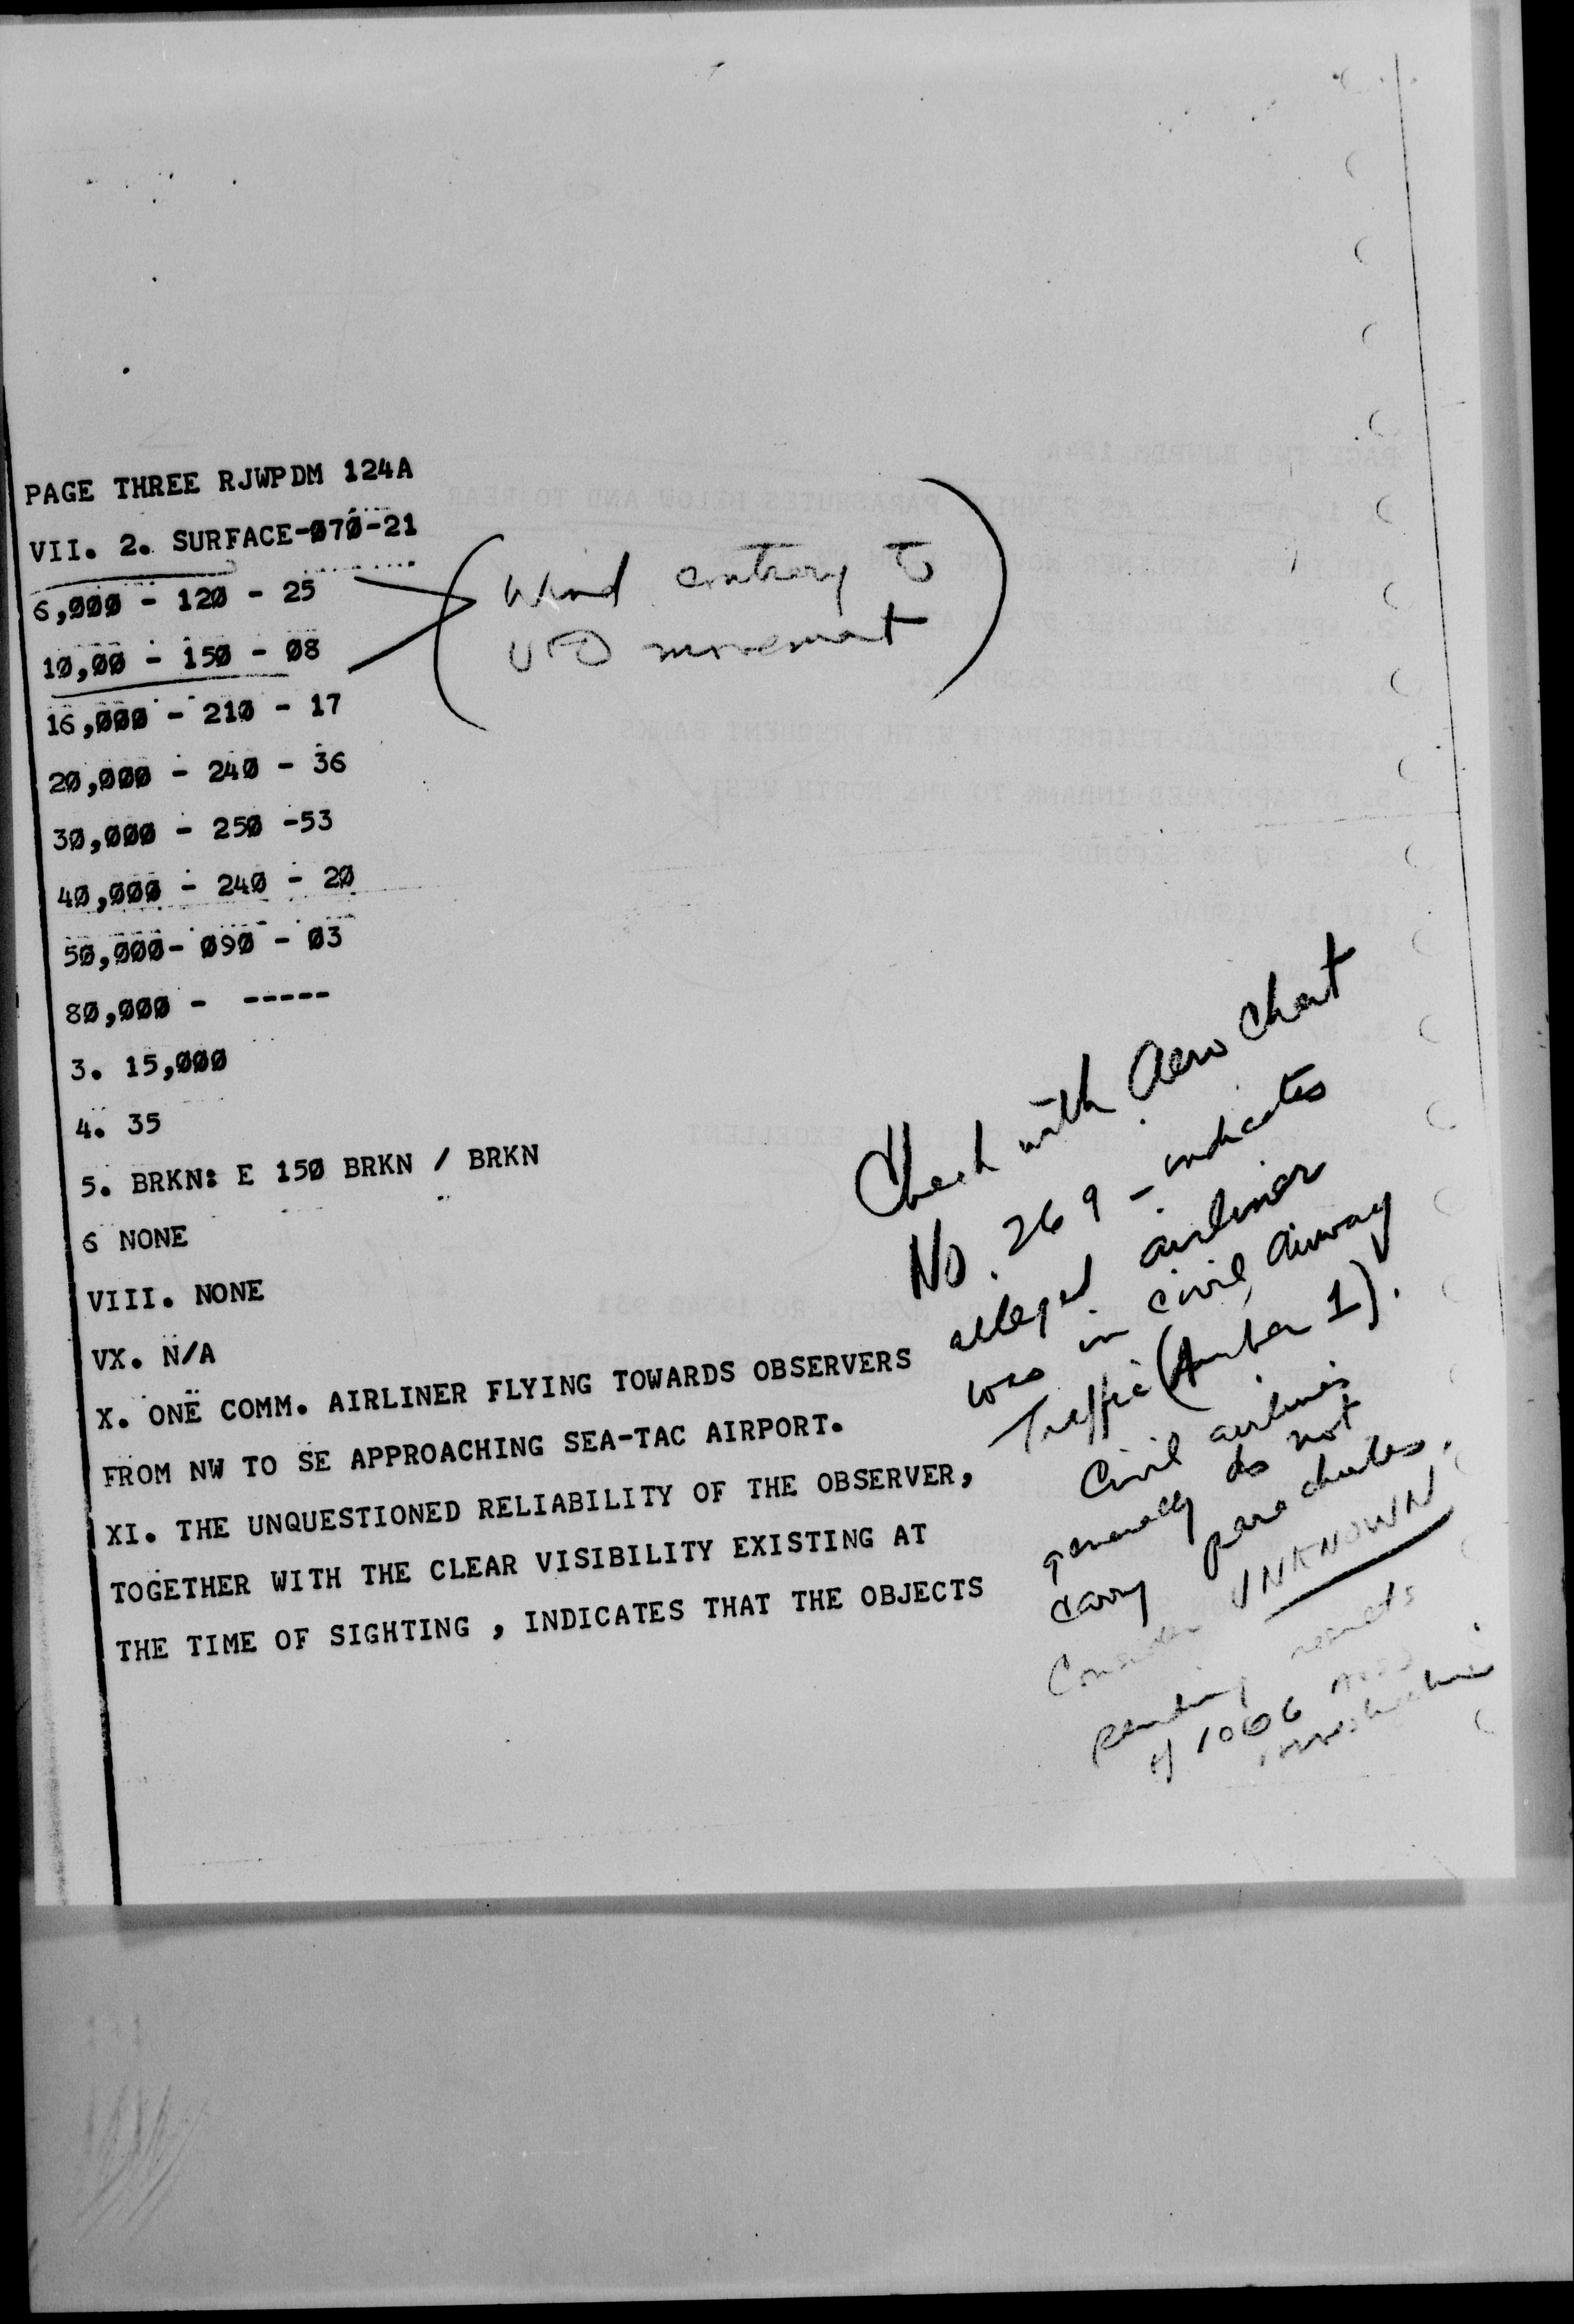 PAGE THREE RJWPDM 124A
VII. 2. SURFACE-070-21
6,000 - 120 - 25
10,00 - 150 - 08
(Wind contrary to
UFO movement)
16,000 - 210 - 17
20,000 - 240 - 36
30,000 - 250 -53
40,000 - 240 - 20
50,000- 090 - 03
80,000 - -----
3. 15,000
4. 35
5. BRKN: E 150 BRKN / BRKN
6 NONE
VIII. NONE
VX. N/A
X. ONE COMM. AIRLINER FLYING TOWARDS OBSERVERS
FROM NW TO SE APPROACHING SEA-TAC AIRPORT.
XI. THE UNQUESTIONED RELIABILITY OF THE OBSERVER,
TOGETHER WITH THE CLEAR VISIBILITY EXISTING AT
THE TIME OF SIGHTING , INDICATES THAT THE OBJECTS
Check with Aero Chart
No. 269 - indicates
alleged airliner
was in civil airway
Traffic (Amber 1).
Civil airlines
generally do not
carry parachutes.
Consider UNKNOWN
pending results
of 1006